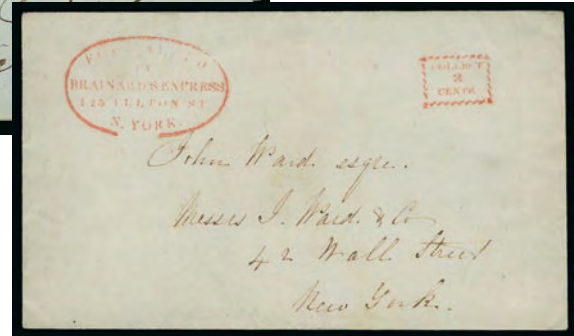 BY
BRAINARD'S EXPRESS
125 FULTON ST
N. YORK.
COLLECT
2
CENTS.
John Ward. esqre.
Messrs J. Ward. & Co
42 Wall. Street
New York.